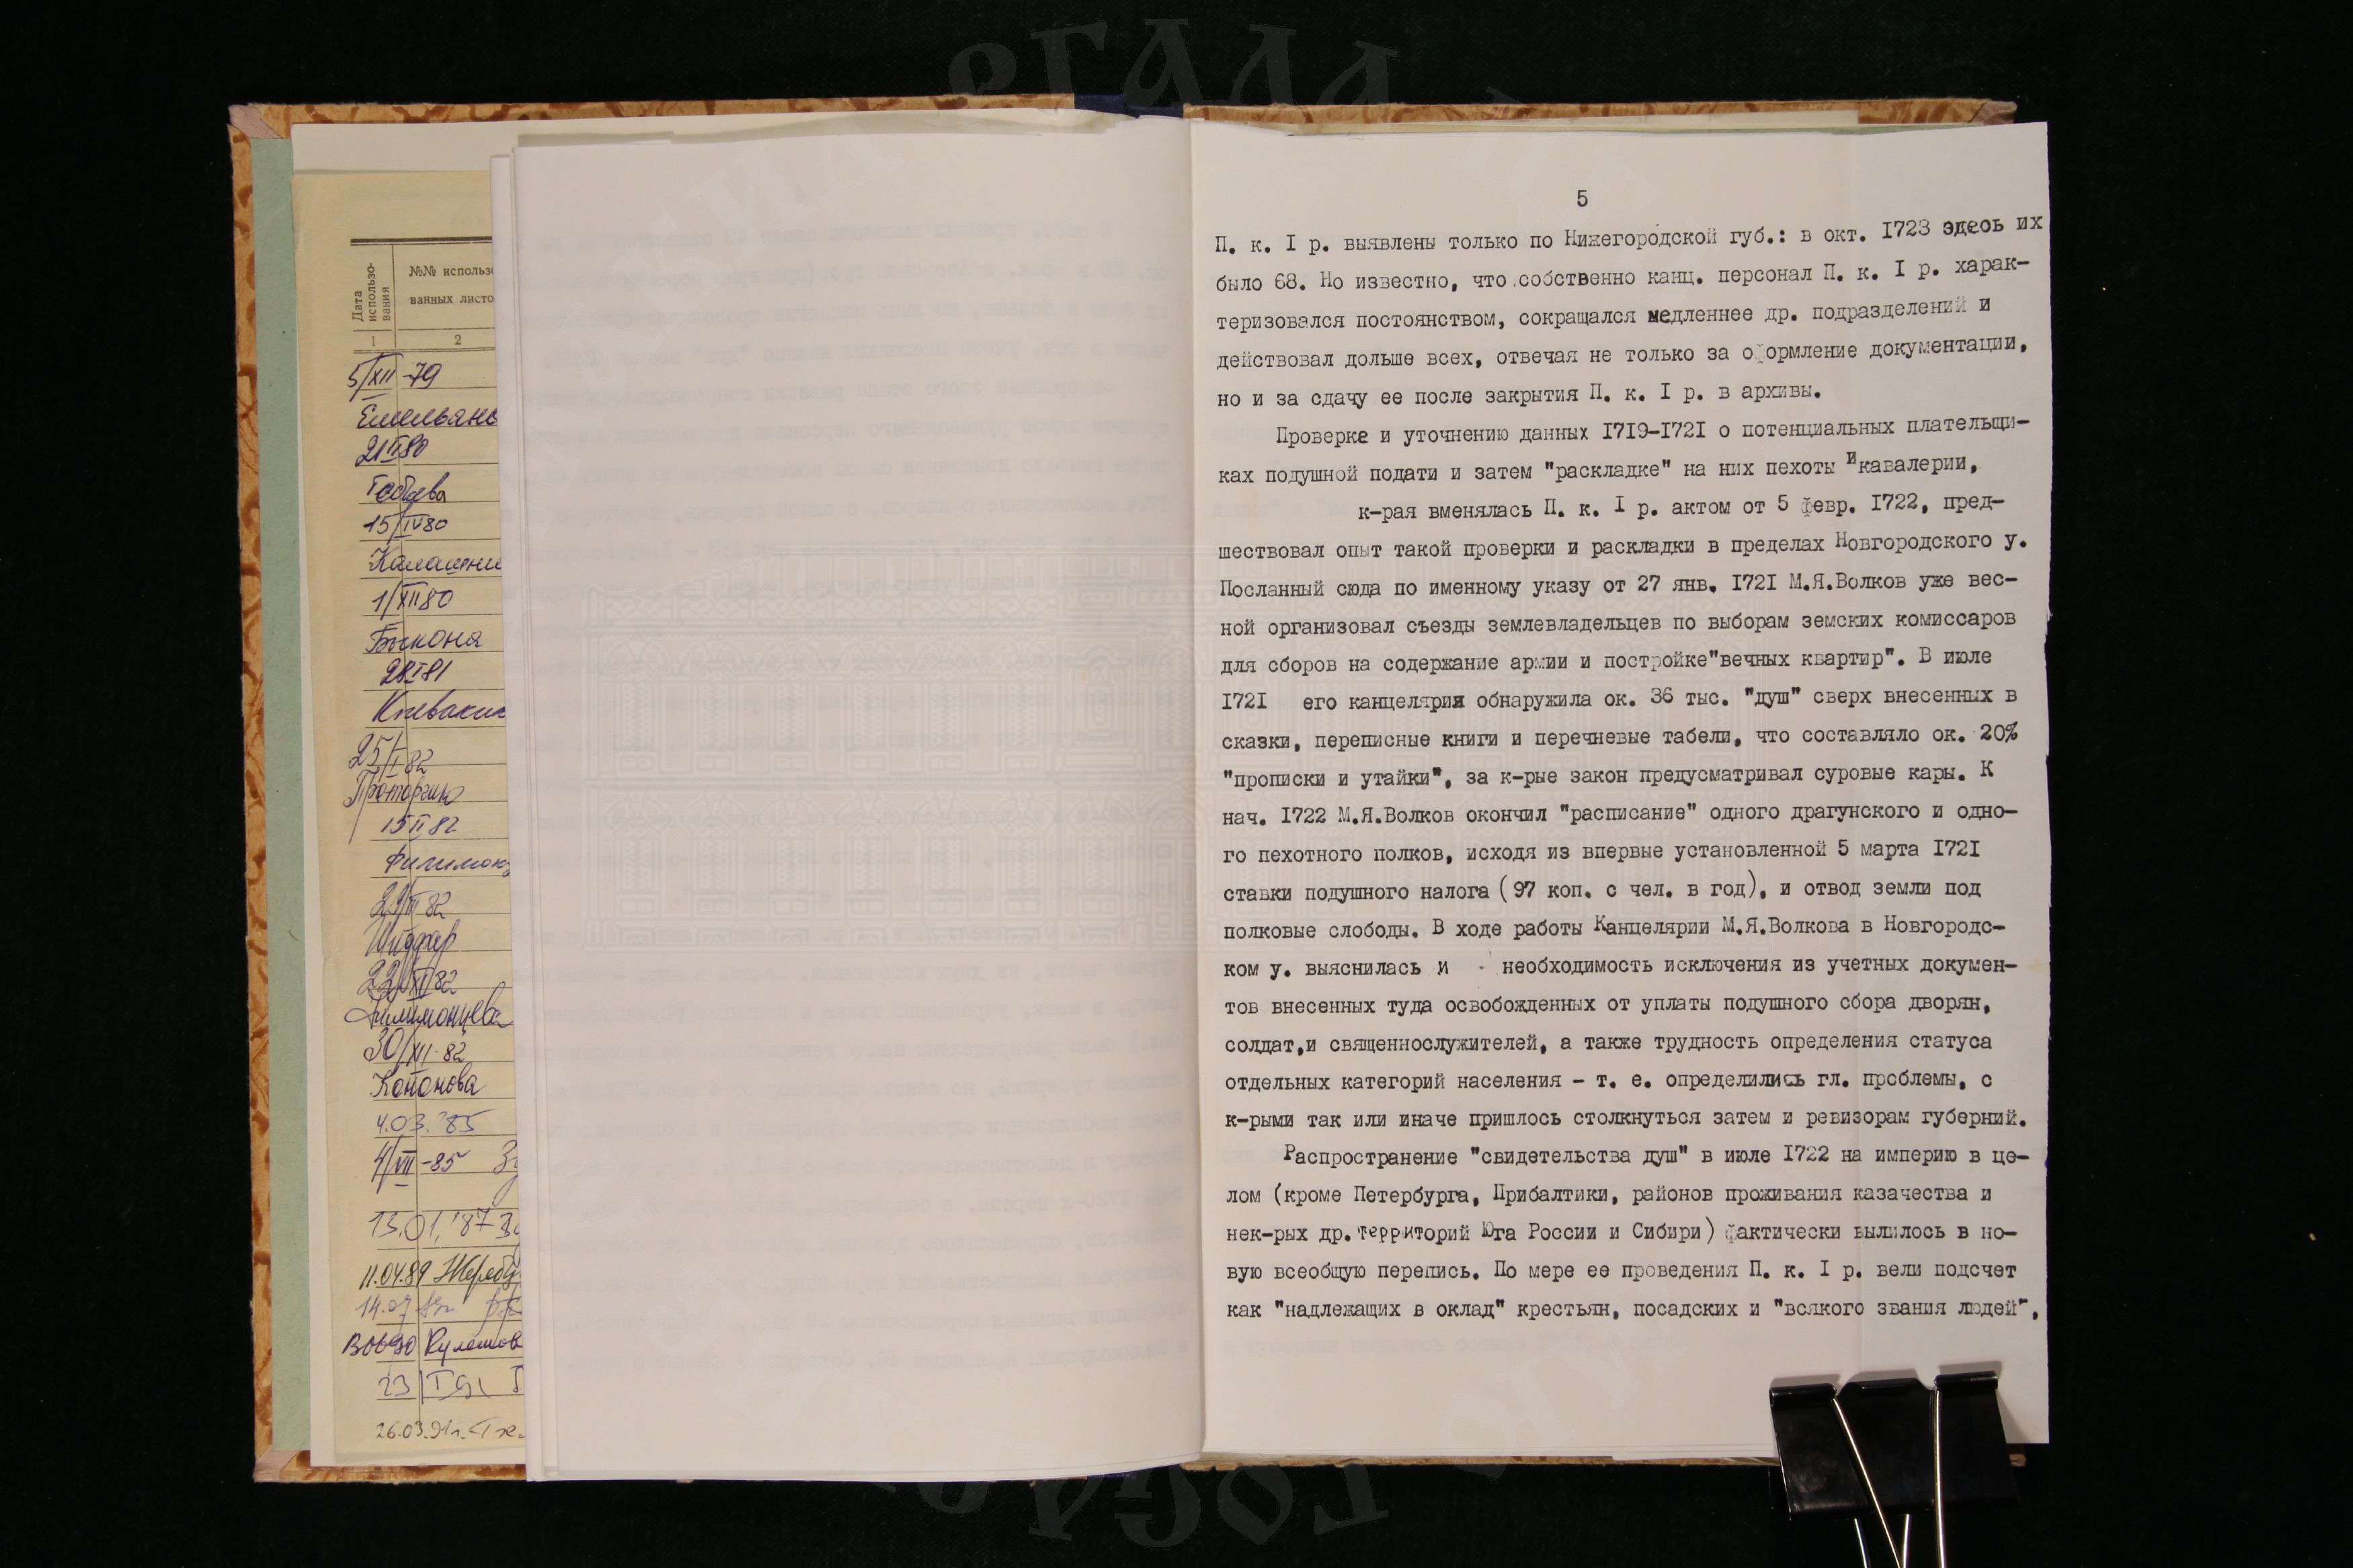 Дата использо-вания
№№ использо
ванных листо
1 2
5/XII-79
21 II 80
15/IV 80
1/XII 80
28 I 81
25/I 82
15 II 82
22/XI 82
30/XII-82
Кононова
4.03.85
4/VII-85
13.01.87
11.04.89
26.03.91г.
5
П. к. I р. выявлены только по Нижегородской губ.: в окт. 1723 здесь их
было 68. Но известно, что собственно канц. персонал П. к. I р. харак-
теризовался постоянством, сокращался медленнее др. подразделений и
действовал дольше всех, отвечая не только за оформление документации,
но и за сдачу ее после закрытия П. к. I р. в архивы.
Проверке и уточнению данных 1719-1721 о потенциальных плательщи-
ках подушной подати и затем "раскладке" на них пехоты и кавалерии,
к-рая вменялась П. к. I р. актом от 5 февр. 1722, пред-
шествовал опыт такой проверки и раскладки в пределах Новгородского у.
Посланный сюда по именному указу от 27 янв. 1721 М.Я.Волков уже вес-
ной организовал съезды землевладельцев по выборам земских комиссаров
для сборов на содержание армии и постройке"вечных квартир". В июле
1721 его канцелярия обнаружила ок. 36 тыс. "душ" сверх внесенных в
сказки, переписные книги и перечневые табели, что составляло ок. 20%
"прописки и утайки", за к-рые закон предусматривал суровые кары. К
нач. 1722 М.Я.Волков окончил "расписание" одного драгунского и одно-
го пехотного полков, исходя из впервые установленной 5 марта 1721
ставки подушного налога (97 коп. с чел. в год), и отвод земли под
полковые слободы. В ходе работы Канцелярии М.Я.Волкова в Новгородс-
ком у. выяснилась и необходимость исключения из учетных докумен-
тов внесенных туда освобожденных от уплаты подушного сбора дворян,
солдат,и священнослужителей, а также трудность определения статуса
отдельных категорий населения - т. е. определились гл. проблемы, с
к-рыми так или иначе пришлось столкнуться затем и ревизорам губерний.
Распространение "свидетельства душ" в июле 1722 на империю в це-
лом (кроме Петербурга, Прибалтики, районов проживания казачества и
нек-рых др. территорий Юга России и Сибири) фактически вылилось в но-
вую всеобщую перепись. По мере ее проведения П. к. I р. вели подсчет
как "надлежащих в оклад" крестьян, посадских и "всякого звания людей",